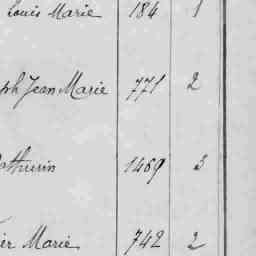 Louis Marie 184 1
ph Jean Marie 771 2
athurin 1469 3
er Marie 742 2